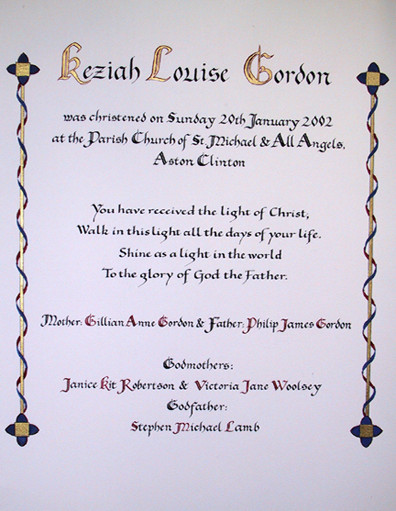 Keziah Louise Gordon
was christened on Sunday 20th January 2002
at the Parish Church of St. Michael & All Angels,
Aston Clinton
You have received the light of Christ;
Walk in this light all the days of your life.
Shine as a light in the world
To the glory of God the Father.
Mother: Gillian Anne Gordon & Father: Philip James Gordon
Godmothers:
Janice Kit Robertson & Victoria Jane Woolsey
Godfather:
Stephen Michael Lamb